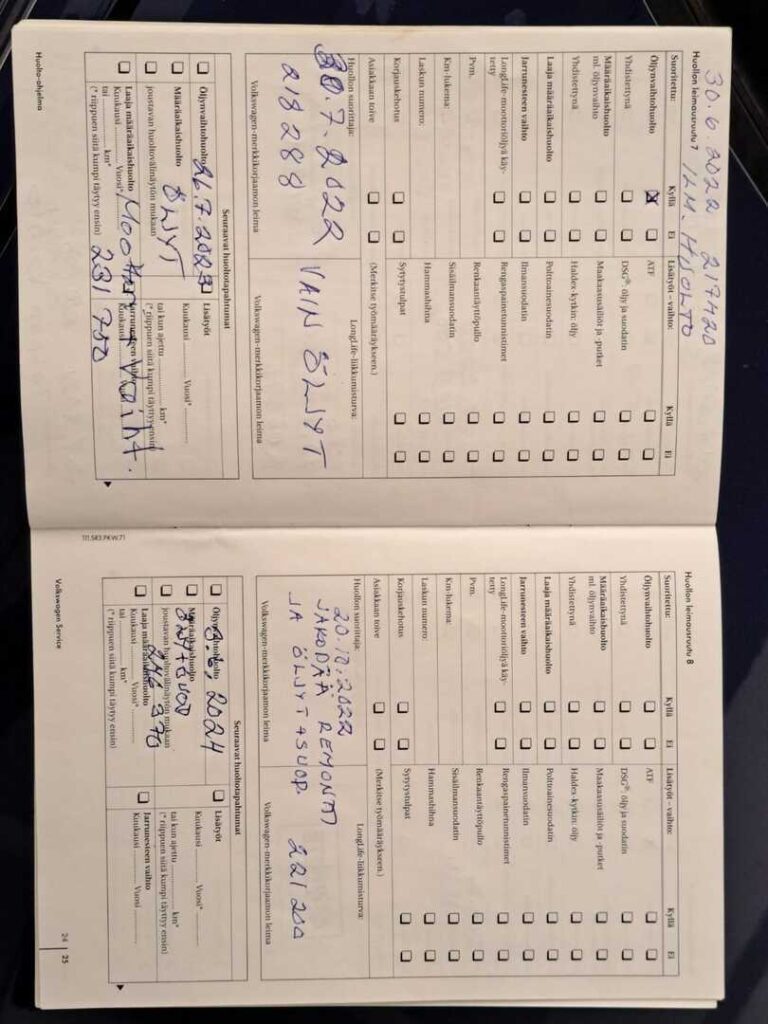 30.6.2022 217420
ILM. HUOLTO
Huollon leimausruutu 7
Suoritettu: Kyllä Ei Lisätyöt – vaihto: Kyllä Ei
Öljynvaihtohuolto ATF
Yhdistettynä DSG®: öljy ja suodatin
Määräaikaishuolto
ml. öljynvaihto Maakaasusäiliöt ja -putket
Yhdistettynä Haldex-kytkin: öljy
Laaja määräaikaishuolto Polttoainesuodatin
Jarrunesteen vaihto Ilmansuodatin
LongLife-moottoriöljyä käy-
tetty Rengaspainetunnistimet
Pvm. Renkaantäyttöpullo
Km-lukema: Sisäilmansuodatin
Laskun numero: Hammashihna
Korjauskehotus Sytytystulpat
Asiakkaan toive (Merkitse työmääräykseen.)
Huollon suorittaja: LongLife-liikkumisturva:
30.7.2022 VAIN ÖLJYT
218288
Volkswagen-merkkikorjaamon leima Volkswagen-merkkikorjaamon leima
Seuraavat huoltotapahtumat
Öljynvaihtohuolto 26.7.2023 Lisätyöt
Määräaikaishuolto ÖLJYT Kuukausi Vuosi*
joustavan huoltovälinäytön mukaan tai kun ajettu km*
(* riippuen siitä kumpi täyttyy ensin)
Laaja määräaikaishuolto Jarrunesteen vaihto
Kuukausi Vuosi* Kuukausi
tai km* 231 750
(* riippuen siitä kumpi täytyy ensin)
Huolto-ohjelma
Huollon leimausruutu 8
Suoritettu: Kyllä Ei Lisätyöt – vaihto: Kyllä Ei
Öljynvaihtohuolto ATF
Yhdistettynä DSG®: öljy ja suodatin
Määräaikaishuolto
ml. öljynvaihto Maakaasusäiliöt ja -putket
Yhdistettynä Haldex-kytkin: öljy
Laaja määräaikaishuolto Polttoainesuodatin
Jarrunesteen vaihto Ilmansuodatin
LongLife-moottoriöljyä käy-
tetty Rengaspainetunnistimet
Pvm. Renkaantäyttöpullo
Km-lukema: Sisäilmansuodatin
Laskun numero: Hammashihna
Korjauskehotus Sytytystulpat
Asiakkaan toive (Merkitse työmääräykseen.)
Huollon suorittaja: LongLife-liikkumisturva:
20.10.2022
JAKOPÄÄ REMONTTI
JA ÖLJYT A SUOD. 221200
Volkswagen-merkkikorjaamon leima Volkswagen-merkkikorjaamon leima
Seuraavat huoltotapahtumat
Öljynvaihtohuolto 3.6.2024 Lisätyöt
Määräaikaishuolto ÖLJYT + SUOD Kuukausi Vuosi*
joustavan huoltovälinäytön mukaan tai kun ajettu km*
246 370 (* riippuen siitä kumpi täytyy ensin)
Laaja määräaikaishuolto Jarrunesteen vaihto
Kuukausi Vuosi* Kuukausi Vuosi
tai km*
(* riippuen siitä kumpi täytyy ensin)
Volkswagen Service 24 25